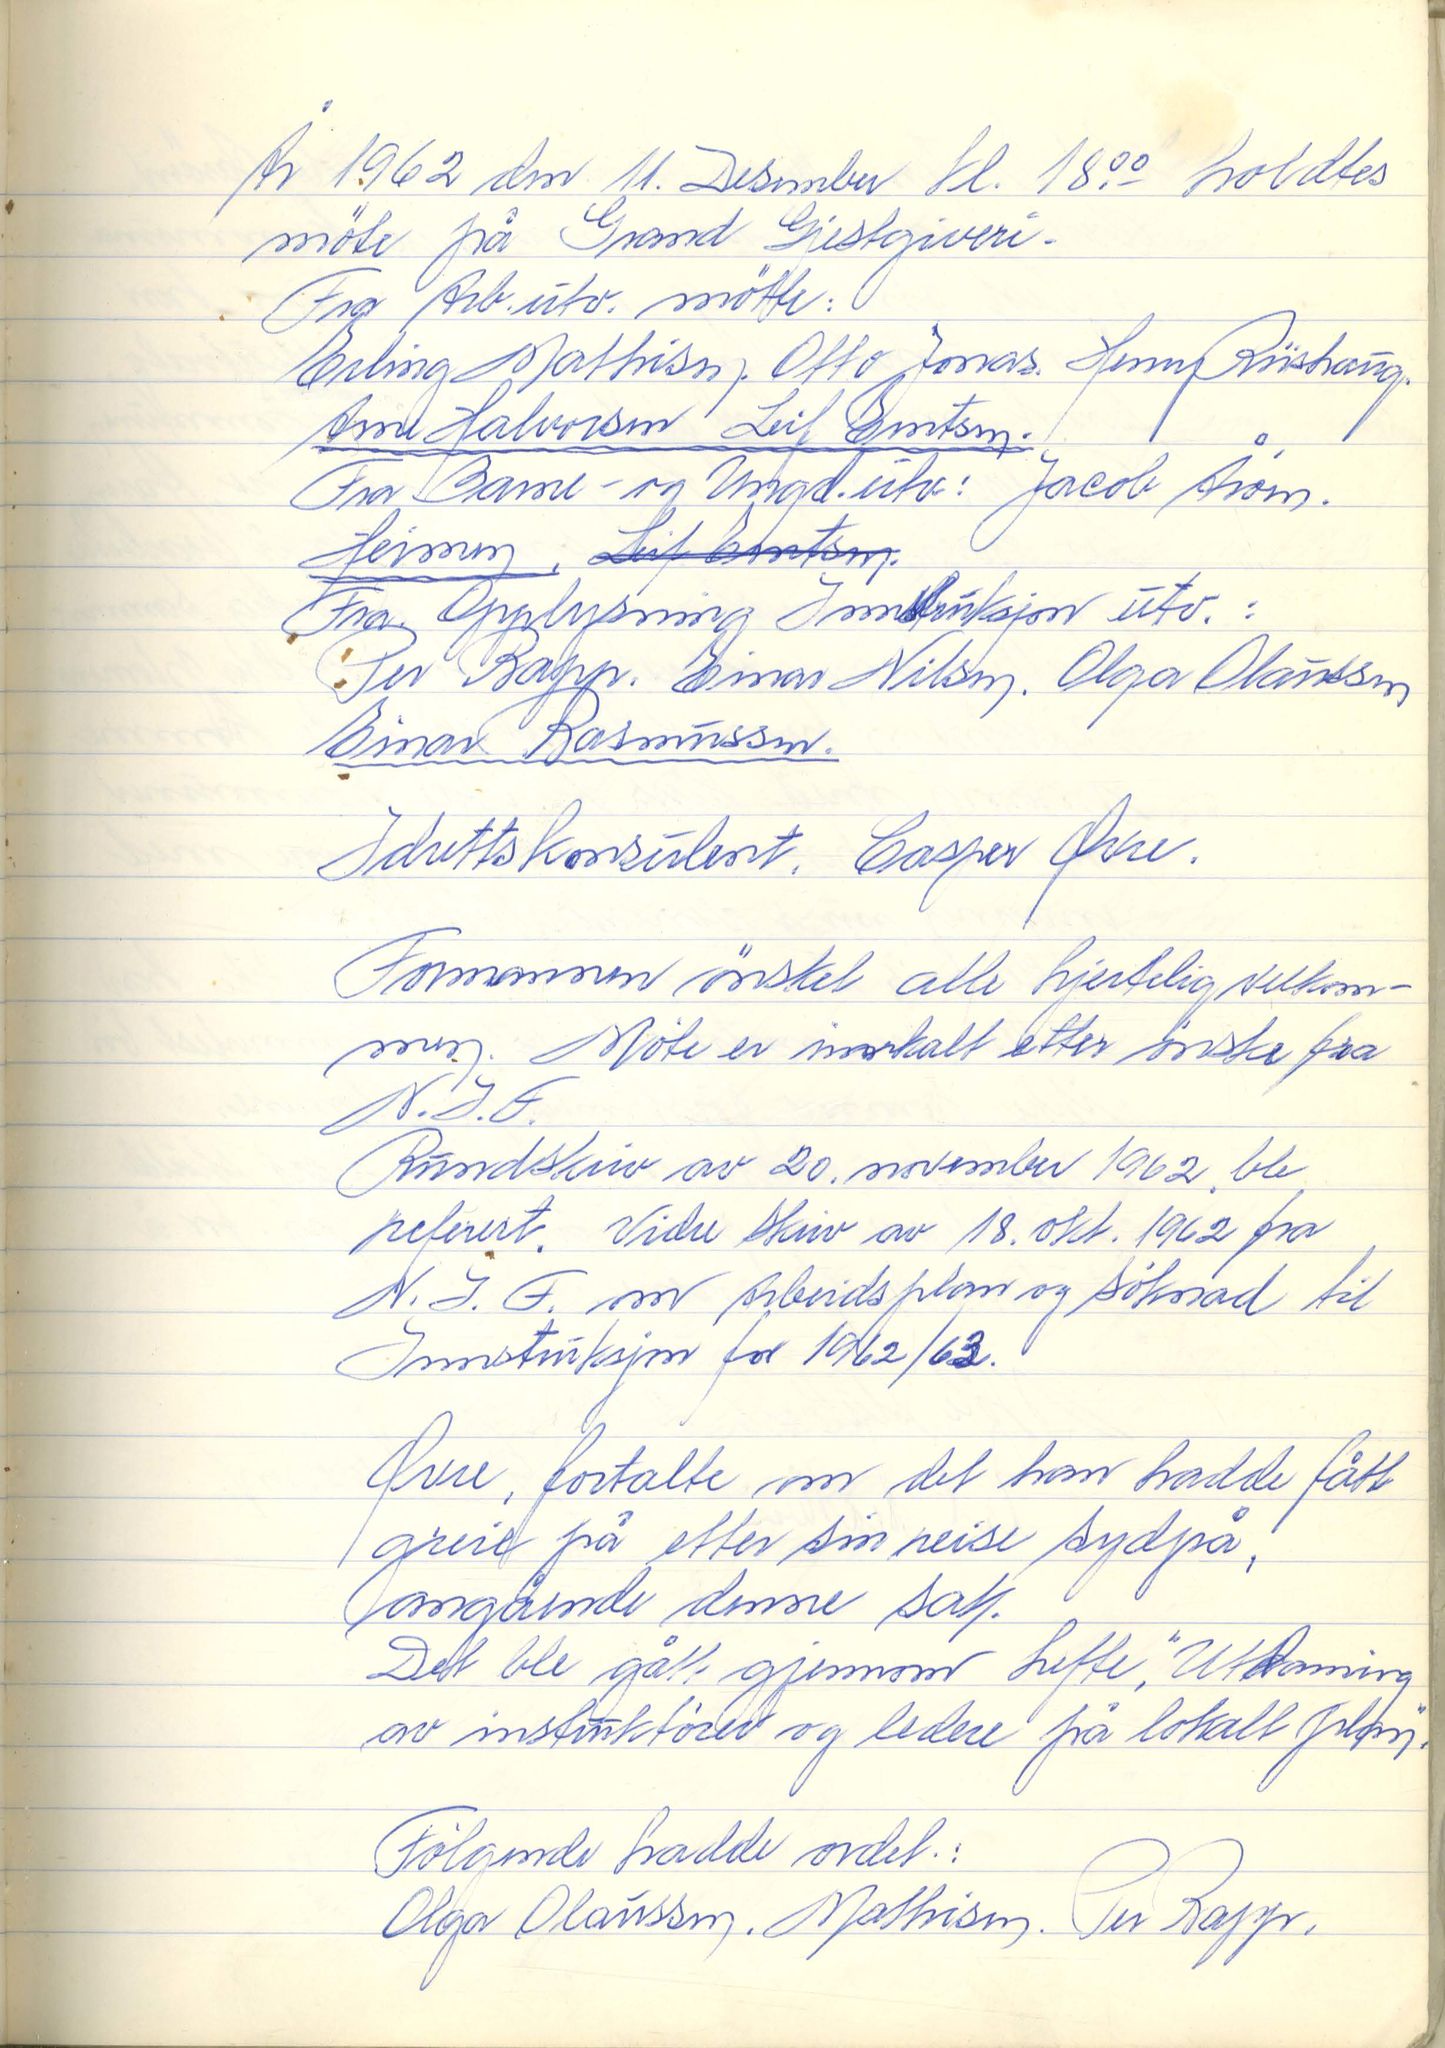 År 1962 den 11. Desember kl. 18.00 holdtes
möte på Grand Gjestgiveri.
Fra Arb.utv. mötte:
Erling Mathisen. Otto Jonas. Henry Riishaug.
Arne Halvorsen Leif Evertsen.
Fra Barne- og Ungd.utv: Jacob Åroen.
Heimen, Leif Evertsen.
Fra Opplysning Innstruksjon utv. :
Per Rapp. Einar Nilsen. Olga Olaussen
Einar Rasmussen.
Idrettskonsulent. Casper Øvre.
Formannen önsket alle hjertelig velkom-
men. Möte er innkalt etter önske fra
N.I.F.
Rundskriv av 20. november 1962 ble
referert. Vidre skriv av 18. okt. 1962 fra
N.I.F. om Arbeidsplan og söknad til
Innstruksjon for 1962/63.
Øvre, fortalte om det han hadde fått
greie på etter sin reise sydpå,
angående denne sak.
Det ble gått gjennom hefte, "Utdanning
av instruktörer og ledere på lokalt plan".
Fölgende hadde ordet.:
Olga Olaussen. Mathisen. Per Rapp.